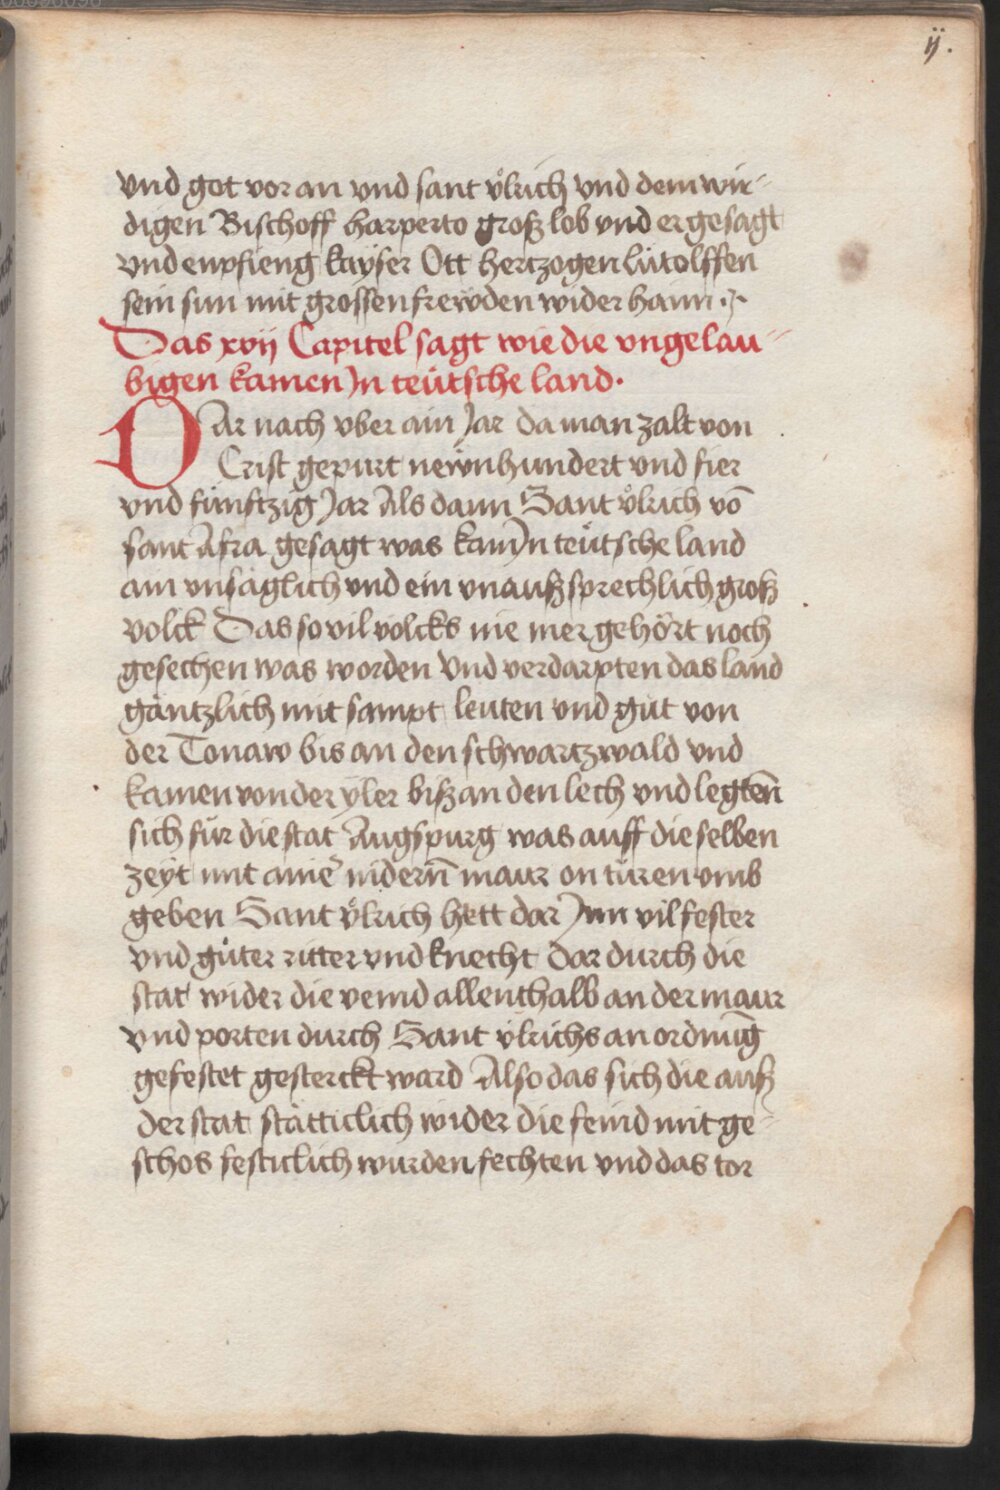 ij.
vnd got vor an vnd sant vͦlrich vnd dem wir-
digen Bischoff harperto groß lob vnd er gesagt
vnd enpfieng kayser Ott hertzogen lütolffen
sein sun mit grossen frewden wider haim.
Das xvij Capitel sagt wie die vngelau-
bigen kamen Jn teütsche land.
DAr nach vber ain Jar da man zalt von
Crist gepurt newnhundert vnd fier
vnd fünftzig Jar Als dann Sant vͦlrich vō
sant Afra gesagt was kam Jn teütsche land
ain vnsäglich vnd ein vnaußsprechlich groß
volck Das so vil volcks nie mer gehört noch
gesechen was worden Vnd verdarpten das land
gäntzlich mit sampt leuten vnd güt von
der Tonaw bis an den schwartzwald vnd
kamen von der yler biß an den lech vnd legten̄
sich für die stat Augspurg was auff die selben
zeyt mit aineᷣ nidern̄ maur on türen vmb
geben Sant vͦlrich hett dar Jnn vil fester
vnd gůter ritter vnd knecht Dar durch die
stat wider die veind allenthalb an der maur
vnd porten durch Sant vͦlrichs an ordnūg
gefestet gesterckt ward Also das sich die auß
der stat stätticlich wider die feind mit ge-
schos festiclich wurden fechten vnd das tor